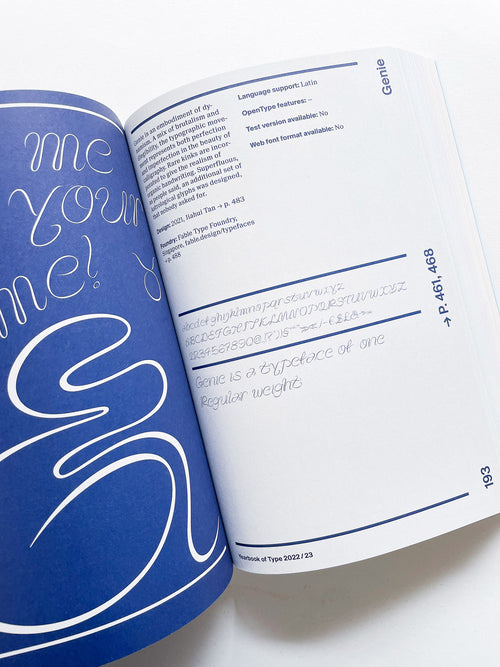 me
your
me!
Genie is an embodiment of dy-
namism. A mix of brutalism and
illegibility, the typographic move-
ment represents both perfection
and imperfection in the beauty of
calligraphy. Rare kinks are incor-
porated to give the realism of
organic handwriting. Superfluous,
as people said, an additional set of
astrological glyphs was designed,
that nobody asked for.
Design: 2021, Jiahui Tan → p. 483
Foundry: Fable Type Foundry,
Singapore, fable.design/typefaces
→ p. 488
Language support: Latin
OpenType features: –
Test version available: No
Web font format available: No
Genie
abcdefghijklmnopqrstuvwxyz
ABCDEFGHIJKLMNOPQRSTUVWXYZ
1234567890
Genie is a typeface of one
Regular weight
→ P. 461, 468
193
Yearbook of Type 2022 / 23